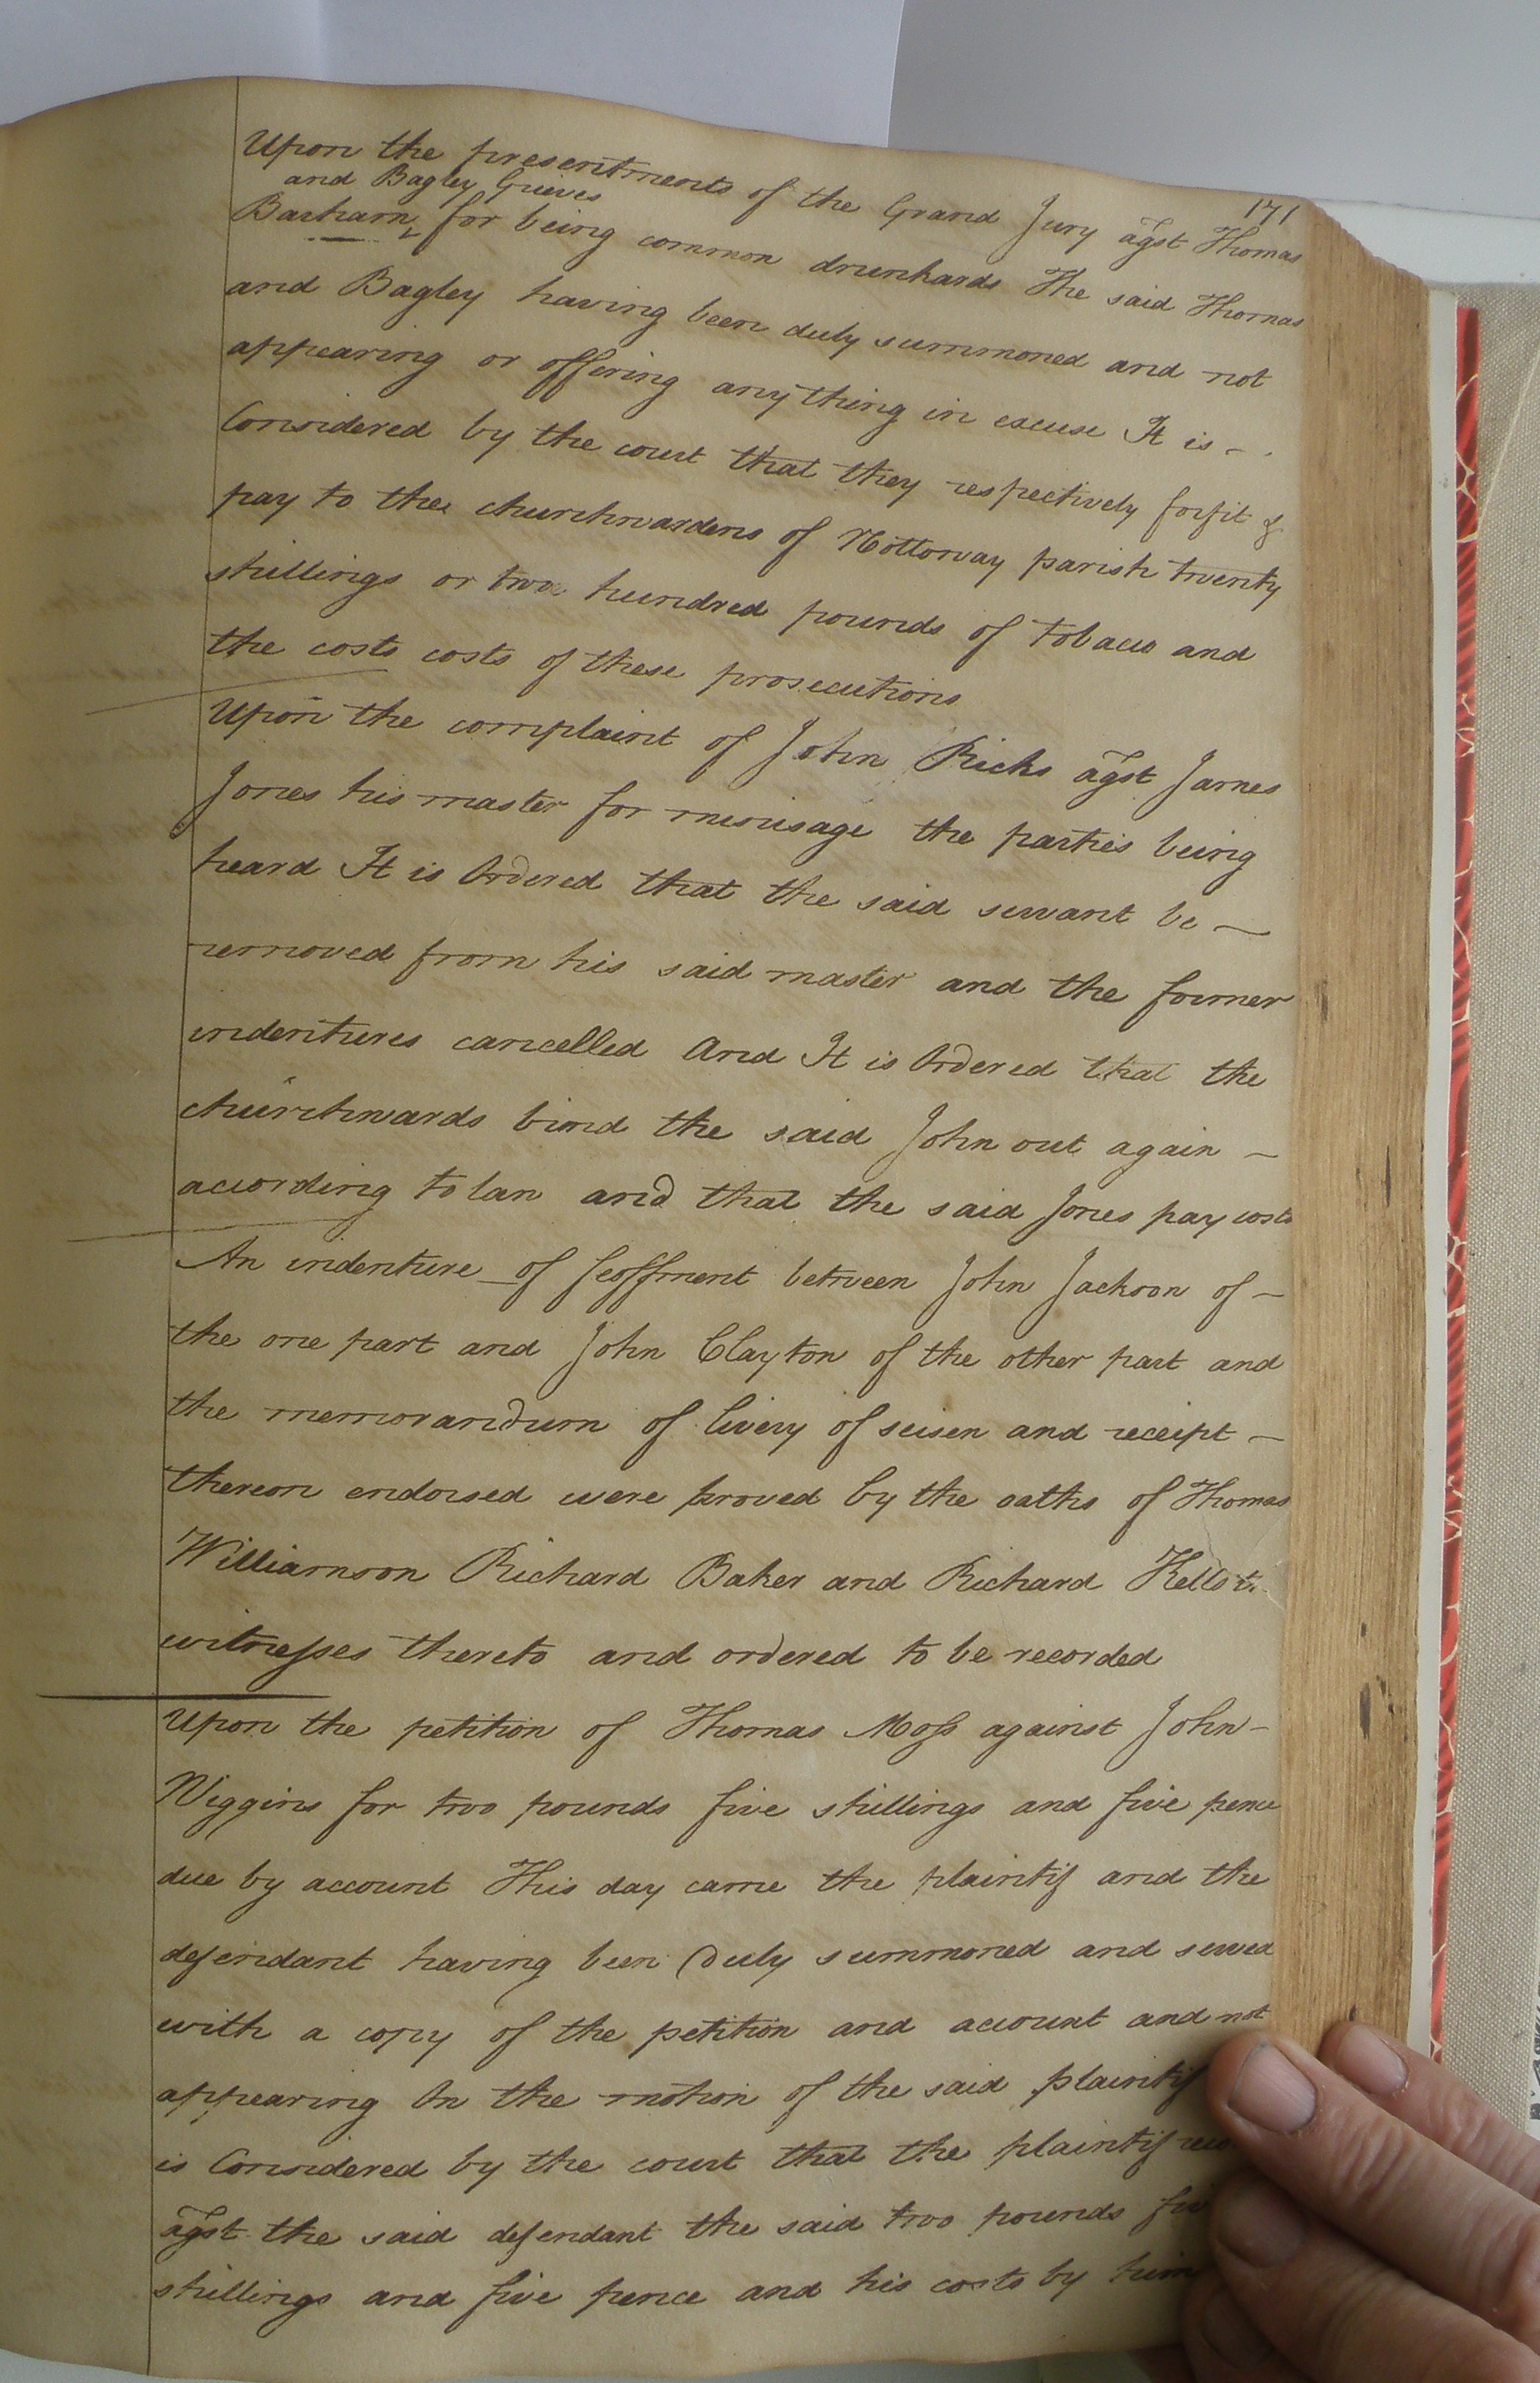 171
Upon the presentments of the Grand Jury agst Thomas
and Bagley Grieves
Barham for being common drunkards The said Thomas
and Bagley having been duly summoned and not
appearing or offering anything in excuse It is
Considered by the court that they respectively forfit &
pay to the churchwardens of Nottoway parish twenty
shillings or two hundred pounds of tobacco and
the costs costs of these prosecutions
Upon the complaint of John Ricks agst James
Jones his master for misusage the parties being
heard It is Ordered that the said servant be
removed from his said master and the former
indentures cancelled And It is Ordered that the
churchwards bind the said John out again
according to law and that the said Jones pay costs
An indenture of feoffment between John Jackson of
the one part and John Clayton of the other part and
the memorandum of livery of seisen and receipt
thereon endorsed were proved by the oaths of Thomas
Williamson Richard Baker and Richard
witnesses thereto and ordered to be recorded
Upon the petition of Thomas Moss against John
Wiggins for two pounds five shillings and five pence
due by account This day came the plaintif and the
defendant having been duly summoned and served
with a copy of the petition and account and not
appearing On the motion of the said plaintif
is Considered by the court that the plaintif
agst the said defendant the said two pounds
shillings and five pence and his costs by him